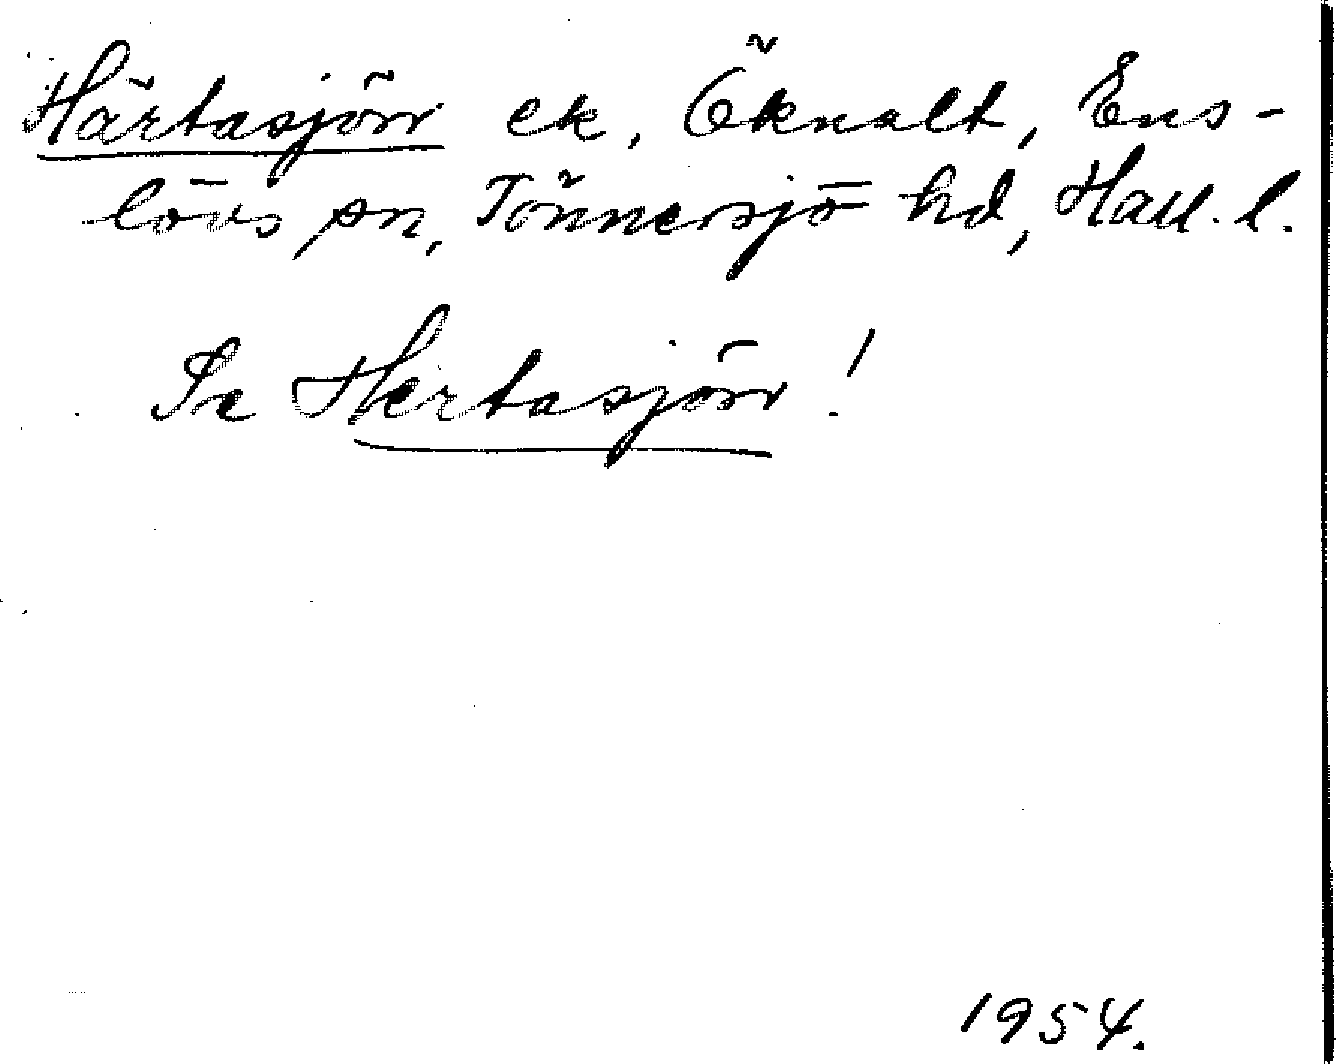 Härtasjörr ek, Öknalt, Ens-
lövs sn, Tönnersjö hd, Hall. l.
Se Hertasjörr!
1954.